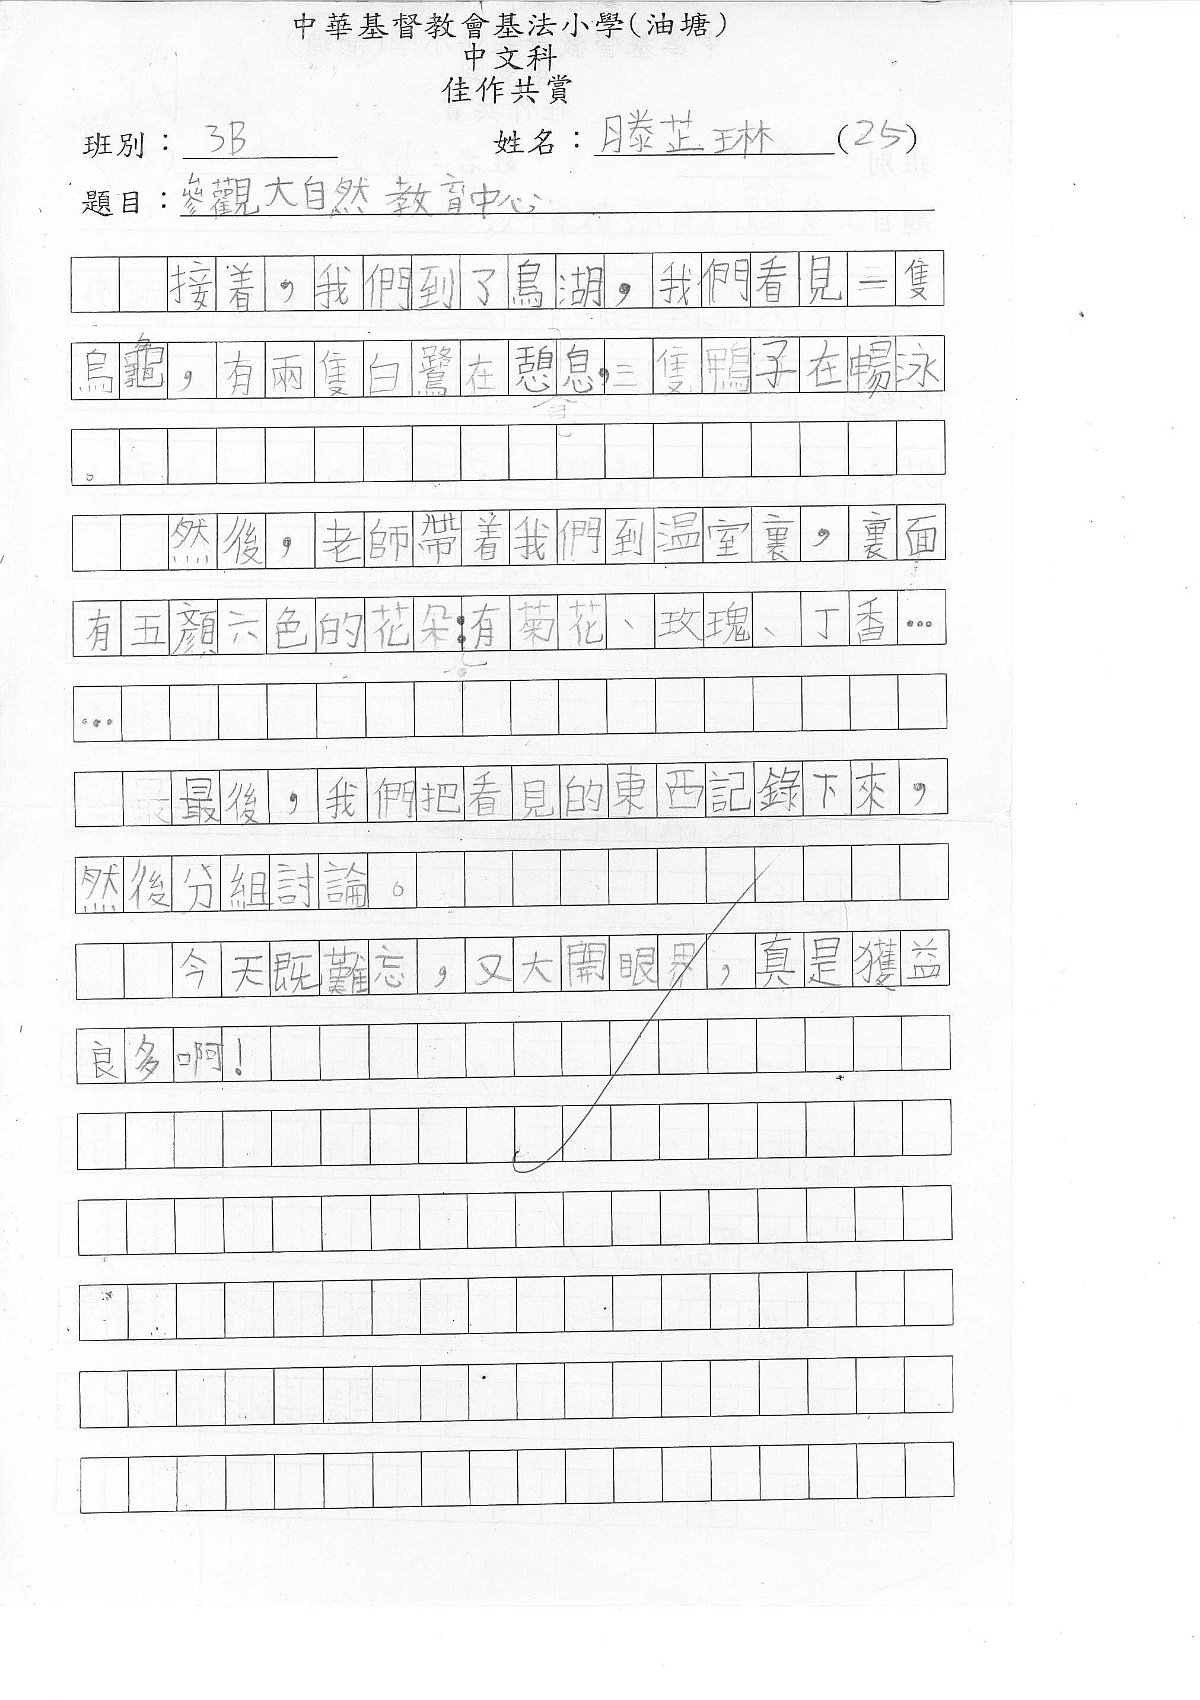 中華基督教會基法小學(油塘)
中文科
佳作共賞
班別：3B 姓名：滕芷琳(25)
題目：參觀大自然教育中心
接着，我們到了鳥湖，我們看見三隻
烏龜，有兩隻白鷺在憩息，三隻鴨子在暢泳
。
然後，老師帶着我們到温室裏，裏面
有五顏六色的花朵：有菊花、玫瑰、丁香…
…
最後，我們把看見的東西記錄下來，
然後分組討論。
今天既難忘，又大開眼界，真是獲益
良多啊！